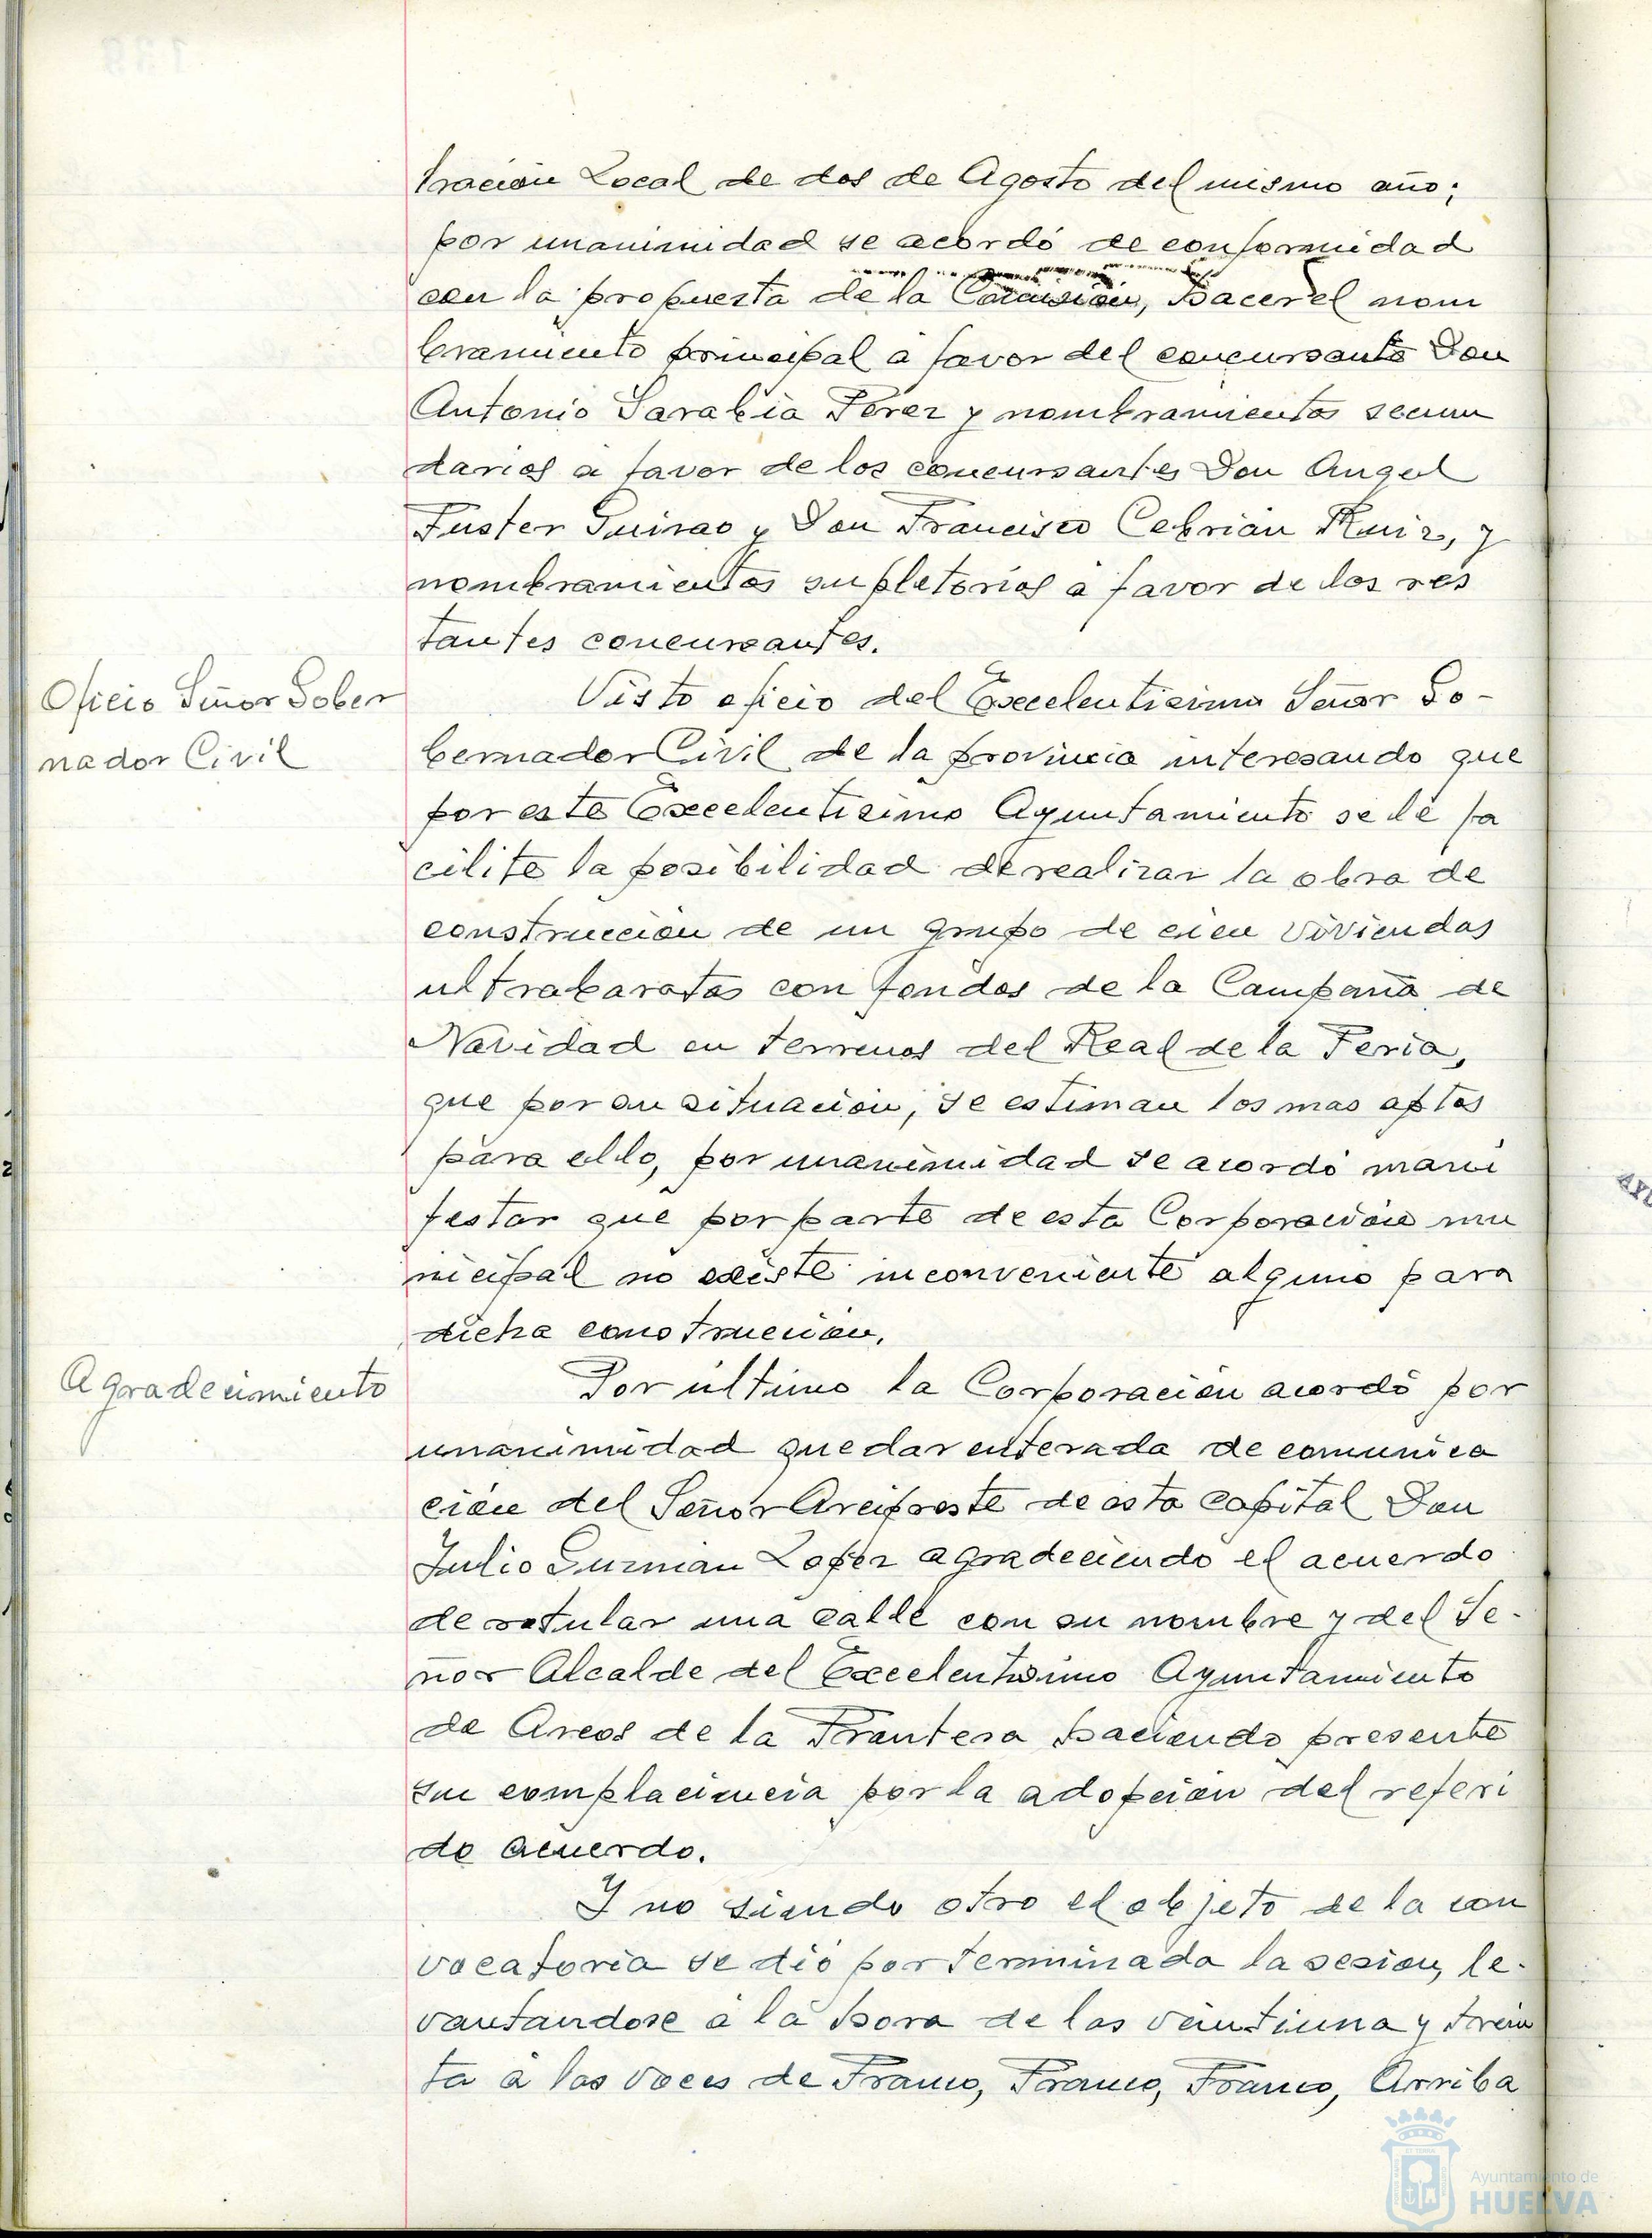 tración Local de dos de Agosto del mismo año;
por unanimidad se acordó de conformidad
con la propuesta de la Comisión, hacer el nom
bramiento principal a favor del concursante Don
Antonio Sarabia Pérez y nombramientos secun
darios a favor de los concursantes Don Angel
Fuster Guirao y Don Francisco Cebrián Ruiz, y
nombramientos supletorios a favor de los res
tantes concursantes.
Oficio Señor Gober
nador Civil
Visto oficio del Excelentisimo Señor Go-
bernador Civil de la provincia interesando que
por este Excelentisimo Ayuntamiento se le fa
cilite la posibilidad de realizar la obra de
construcción de un grupo de cien viviendas
ultrabaratas con fondos de la Campaña de
Navidad en terrenos del Real de la Feria,
que por su situación, se estiman los mas aptos
para ello, por unanimidad se acordó mani
festar que por parte de esta Corporación mu
nicipal no existe inconveniente alguno para
dicha construcción.
Agradecimiento
Por último la Corporación acordó por
unanimidad quedar enterada de comunica
ción del Señor Arcipreste de esta capital Don
Julio Guzmán Lopez agradeciendo el acuerdo
de rotular una calle con su nombre y del Se-
ñor Alcalde del Excelentisimo Ayuntamiento
de Arcos de la Frontera haciendo presente
su complacencia por la adopción del referi
do acuerdo.
Y no siendo otro el objeto de la con
vocatoria se dió por terminada la sesion, le-
vantandose a la hora de las veintiuna y trein
ta a las voces de Franco, Franco, Franco, Arriba
Ayuntamiento de
HUELVA